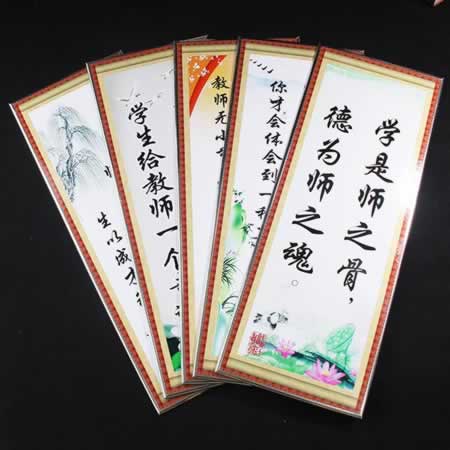 学是师之骨，
德为师之魂。
你才会体会到一
教师无小
学生给教师一个
生以成才